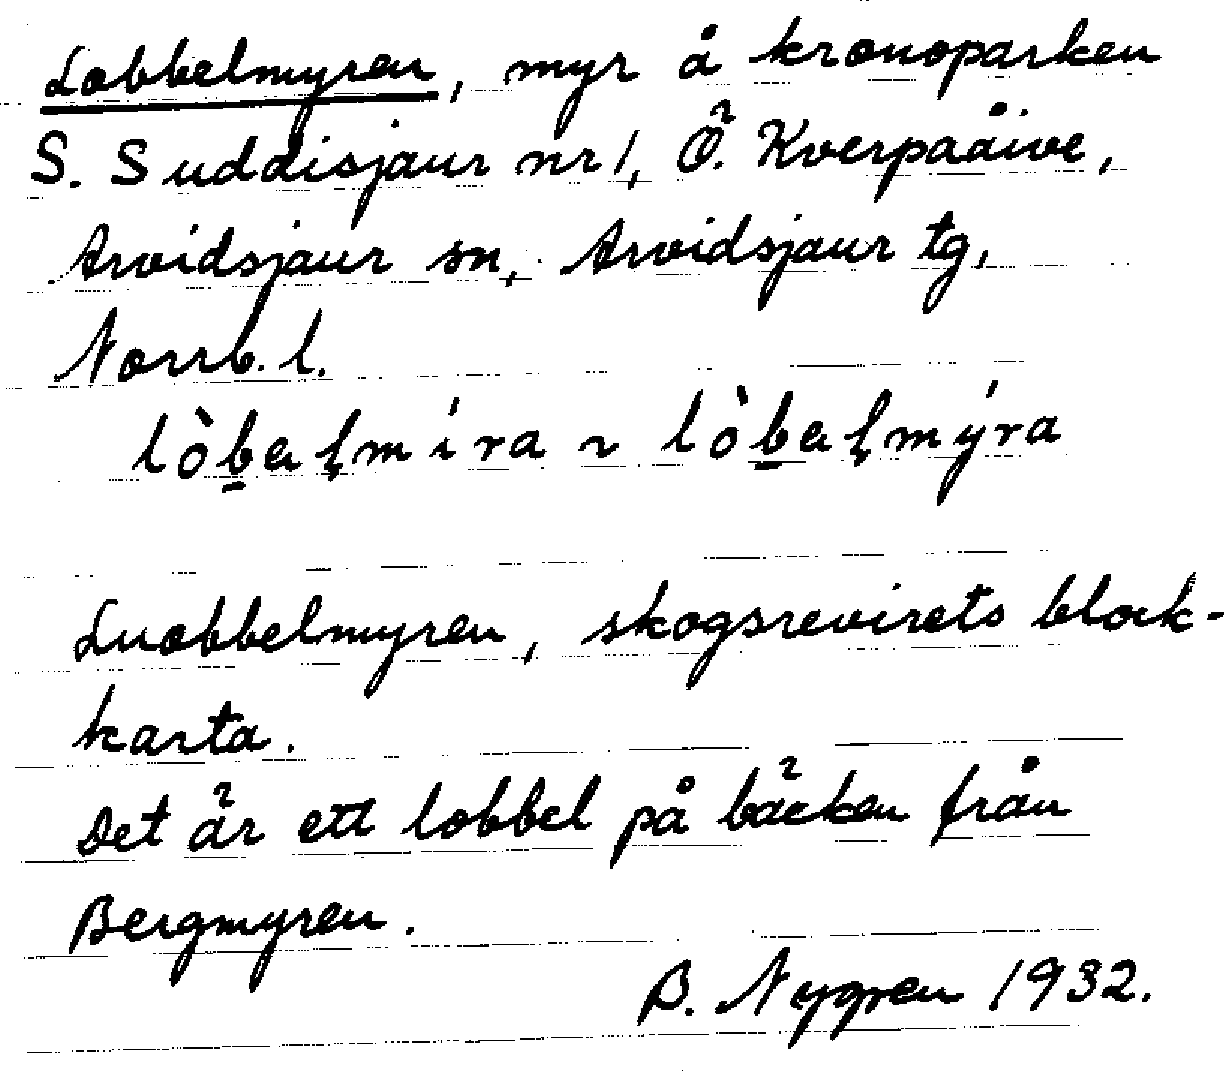 Lobbelmyren, myr å kronoparken
S. Suddisjaur nr 1, Ö. Kverpaåive,
Arvidsjaur sn, Arvidsjaur tg,
Norrb. l.
lòb̲aļmíra ~ lòb̲aļmýra
Luobbelmyren, skogsrevirets block-
karta.
Det är ett lobbel på bäcken från
Bergmyren.
B. Nygren 1932.